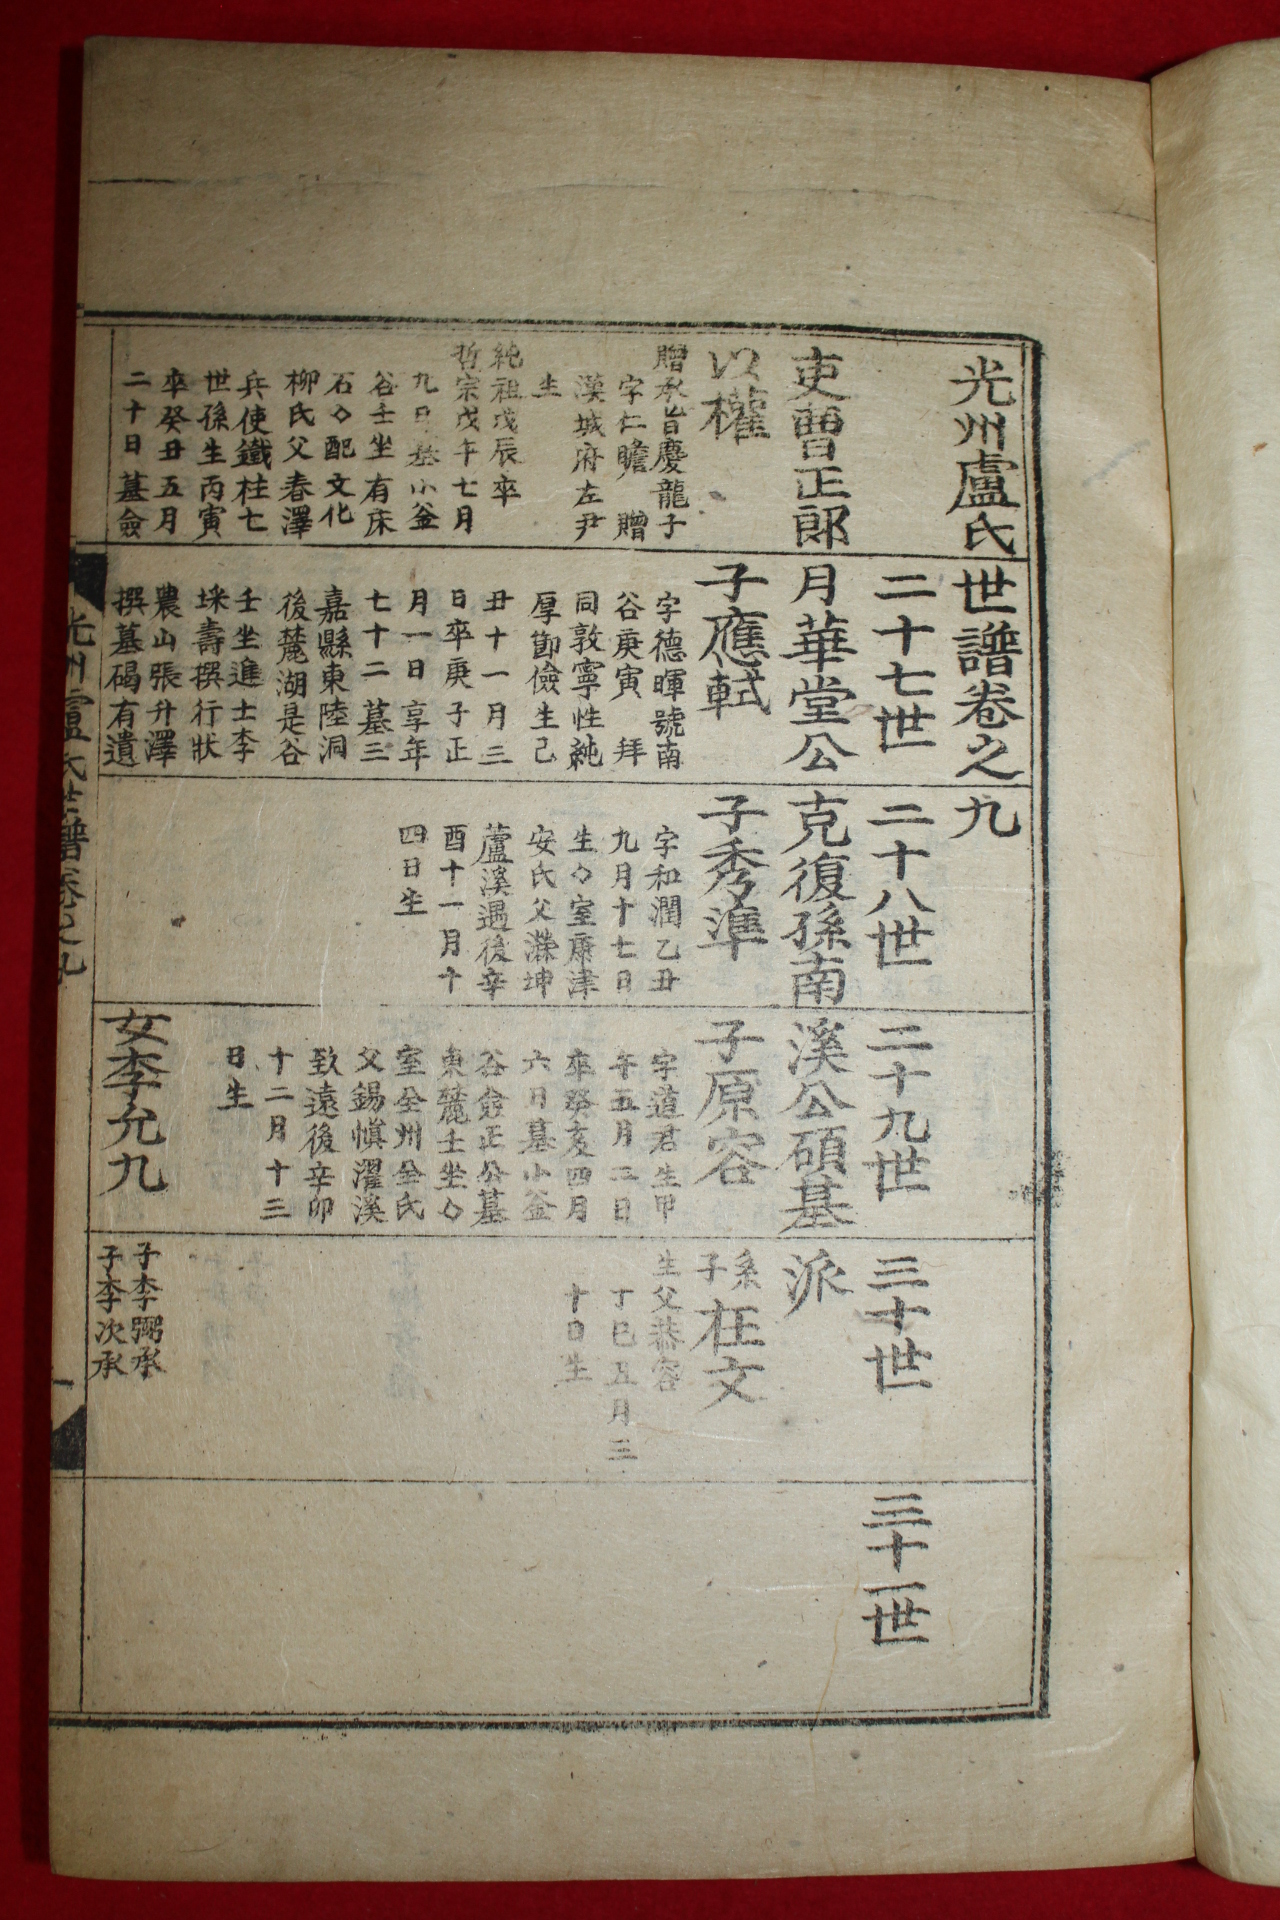 光州盧氏世譜卷之九
二十七世
二十八世
二十九世
三十世
三十一世
吏曹正郎月華堂公克復孫南溪公碩基派
以權
贈承旨慶龍子
字仁瞻 贈
漢城府左尹
生
純祖戊辰卒
哲宗戊午七月
九日墓小釜
谷壬坐有床
石◇配文化
柳氏父春澤
兵使鐵柱七
世孫生丙寅
卒癸丑五月
二十日墓僉
子應軾
字德暉號南
谷庚寅 拜
同敦寧性純
厚節儉生己
丑十一月三
日卒庚子正
月一日享年
七十二 墓三
嘉縣東陸洞
後麓湖是谷
壬坐進士李
壽撰行狀
農山張升澤
撰墓碣有遺
子秀準
字和潤乙丑
九月十七日
生◇室康津
安氏父濼坤
蘆溪遇後辛
酉十一月十
四日生
子原容
字道君生甲
午五月二日
卒癸亥四月
六日墓小釜
谷僉正公墓
東麓壬坐◇
室全州全氏
父錫愼濯溪
致遠後辛卯
十二月十三
日生
女李允九
系子枉文
生父恭容
丁巳五月三
十日生
子李弼承
子李次承
光州盧氏世譜卷之九
一